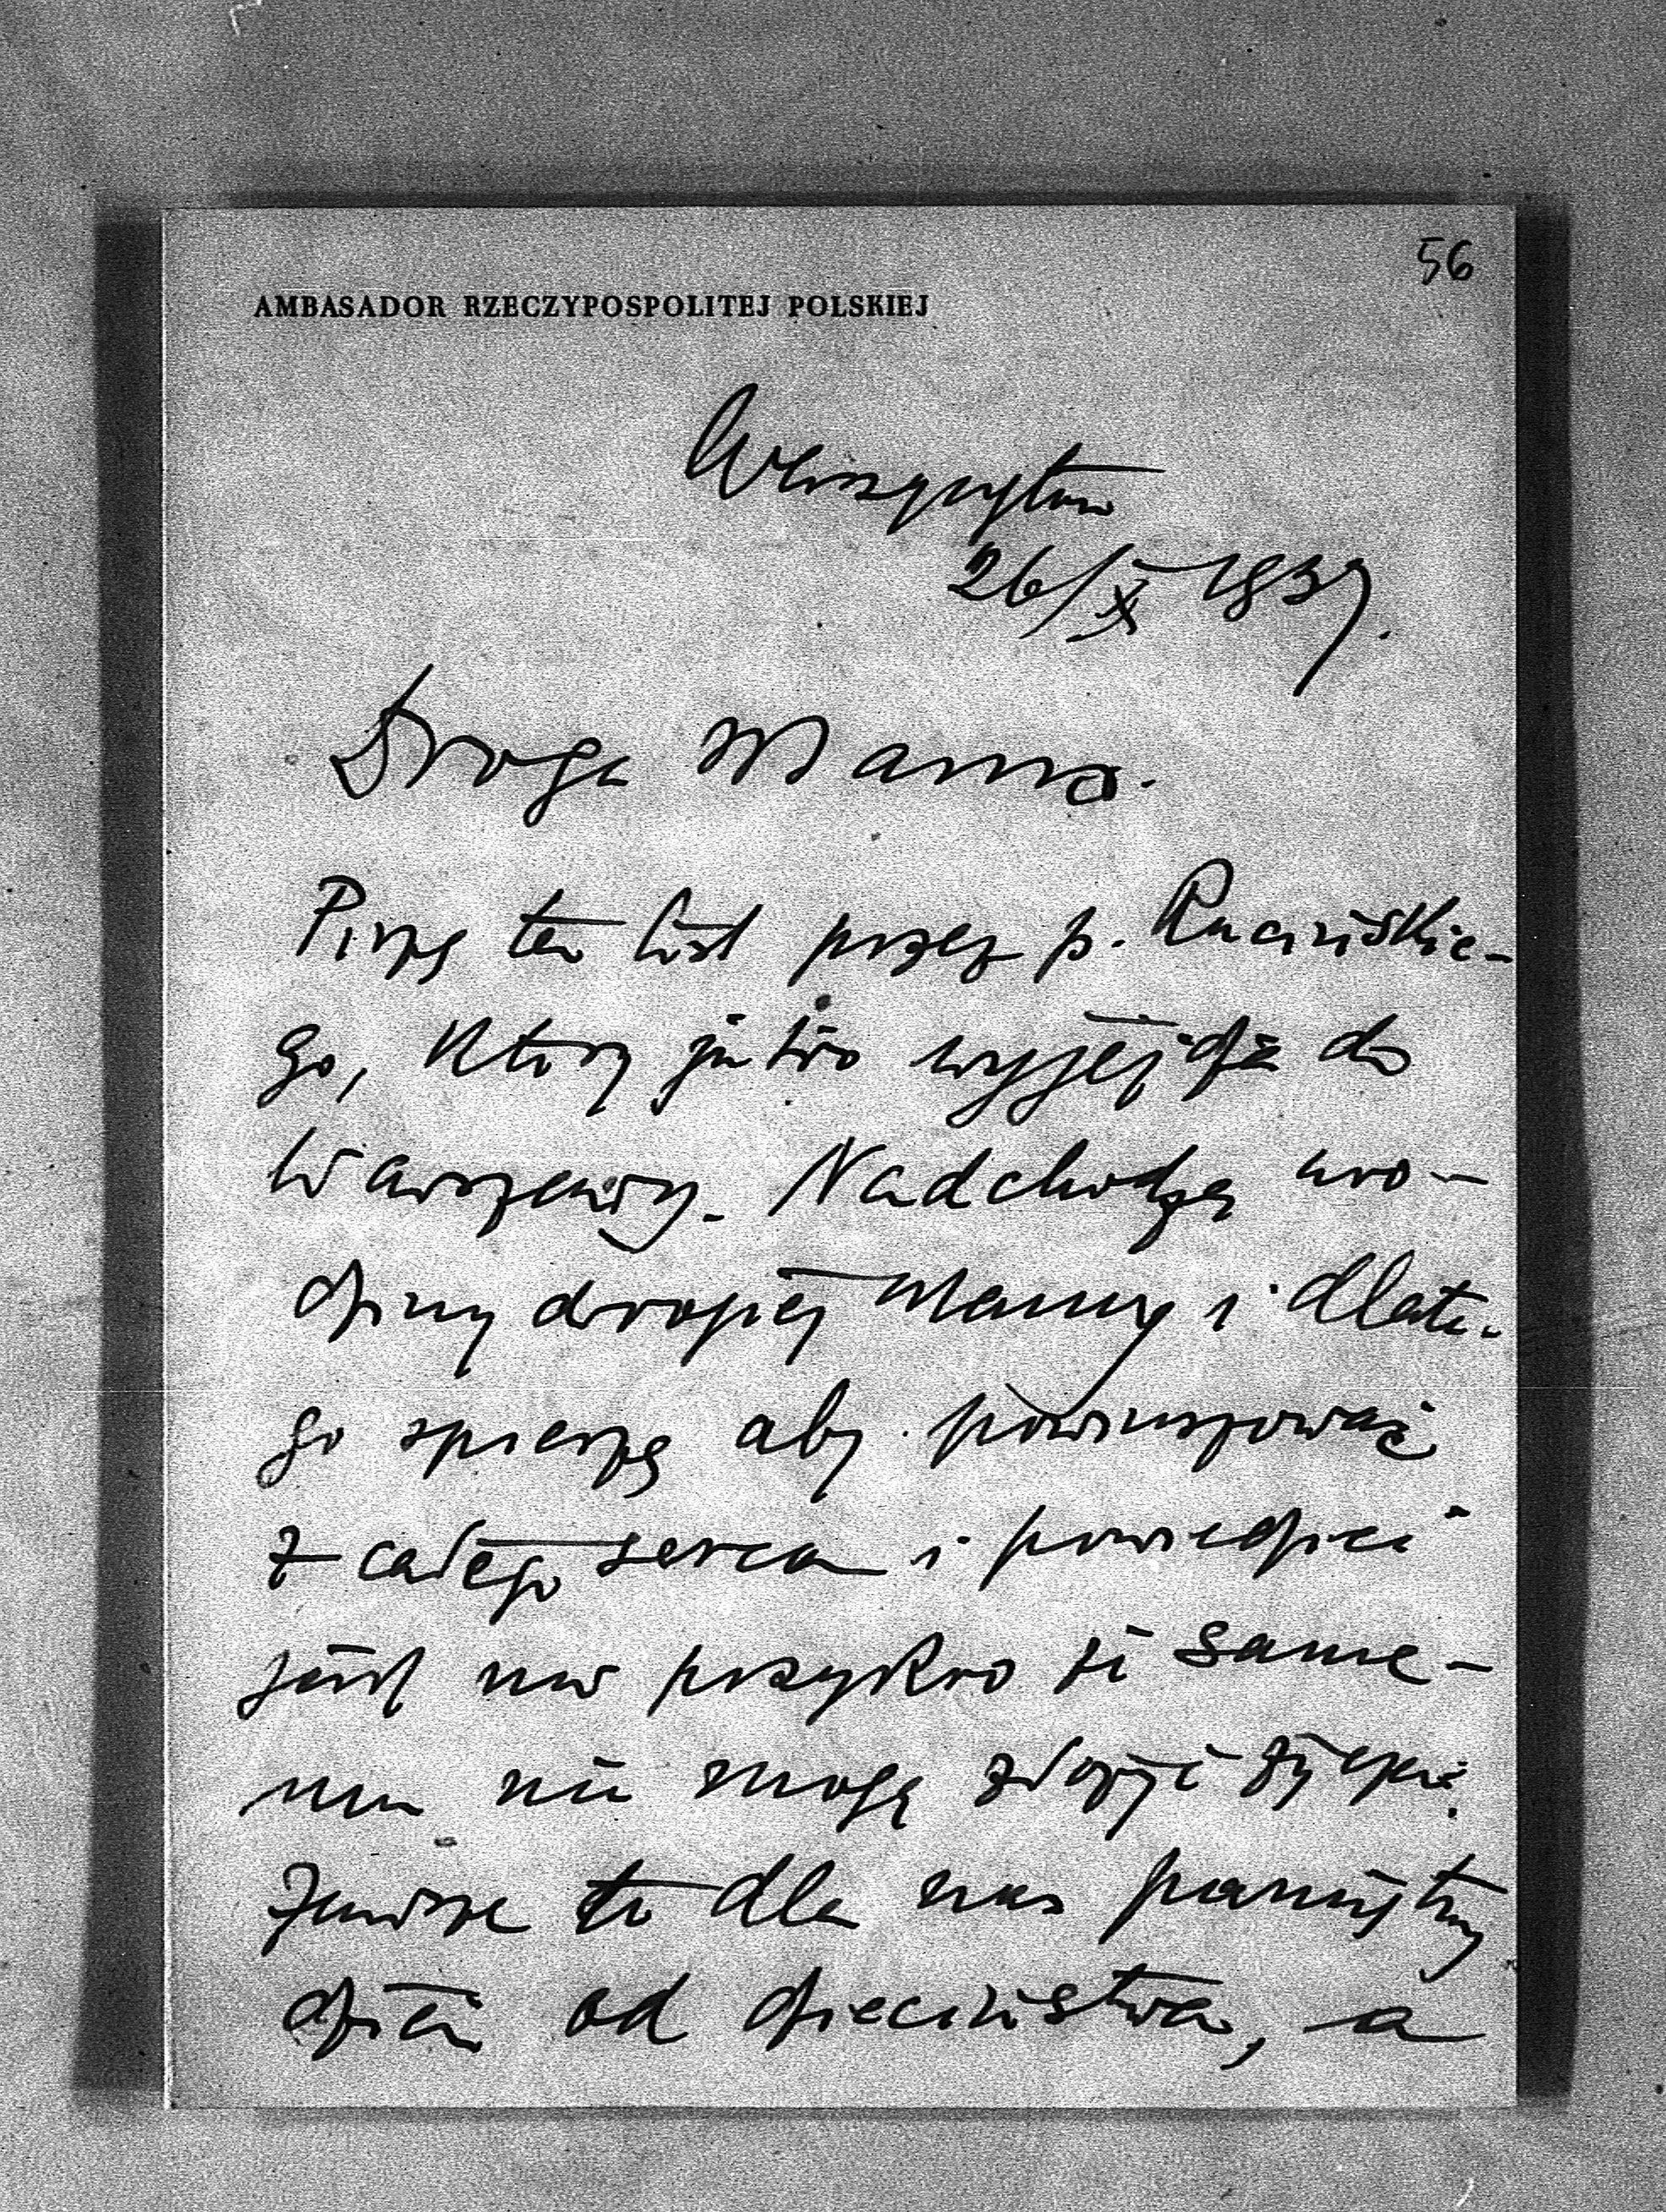 56
AMBASADOR RZECZYPOSPOLITEJ POLSKIEJ
Waszyngton
26/X 1937.
Droga Mamo.
Piszę ten list przez p. Rucińskie-
go, który jutro wyjeżdża do
Warszawy. Nadchodzą uro-
dziny drogiej Mamy i dlate-
go spieszę aby powinszować
z całego serca i powiedzieć
jest mi przykro że same-
mu nie mogę złożyć życzeń.
Zawsze to dla nas pamiętny
dzień od dzieciństwa, a